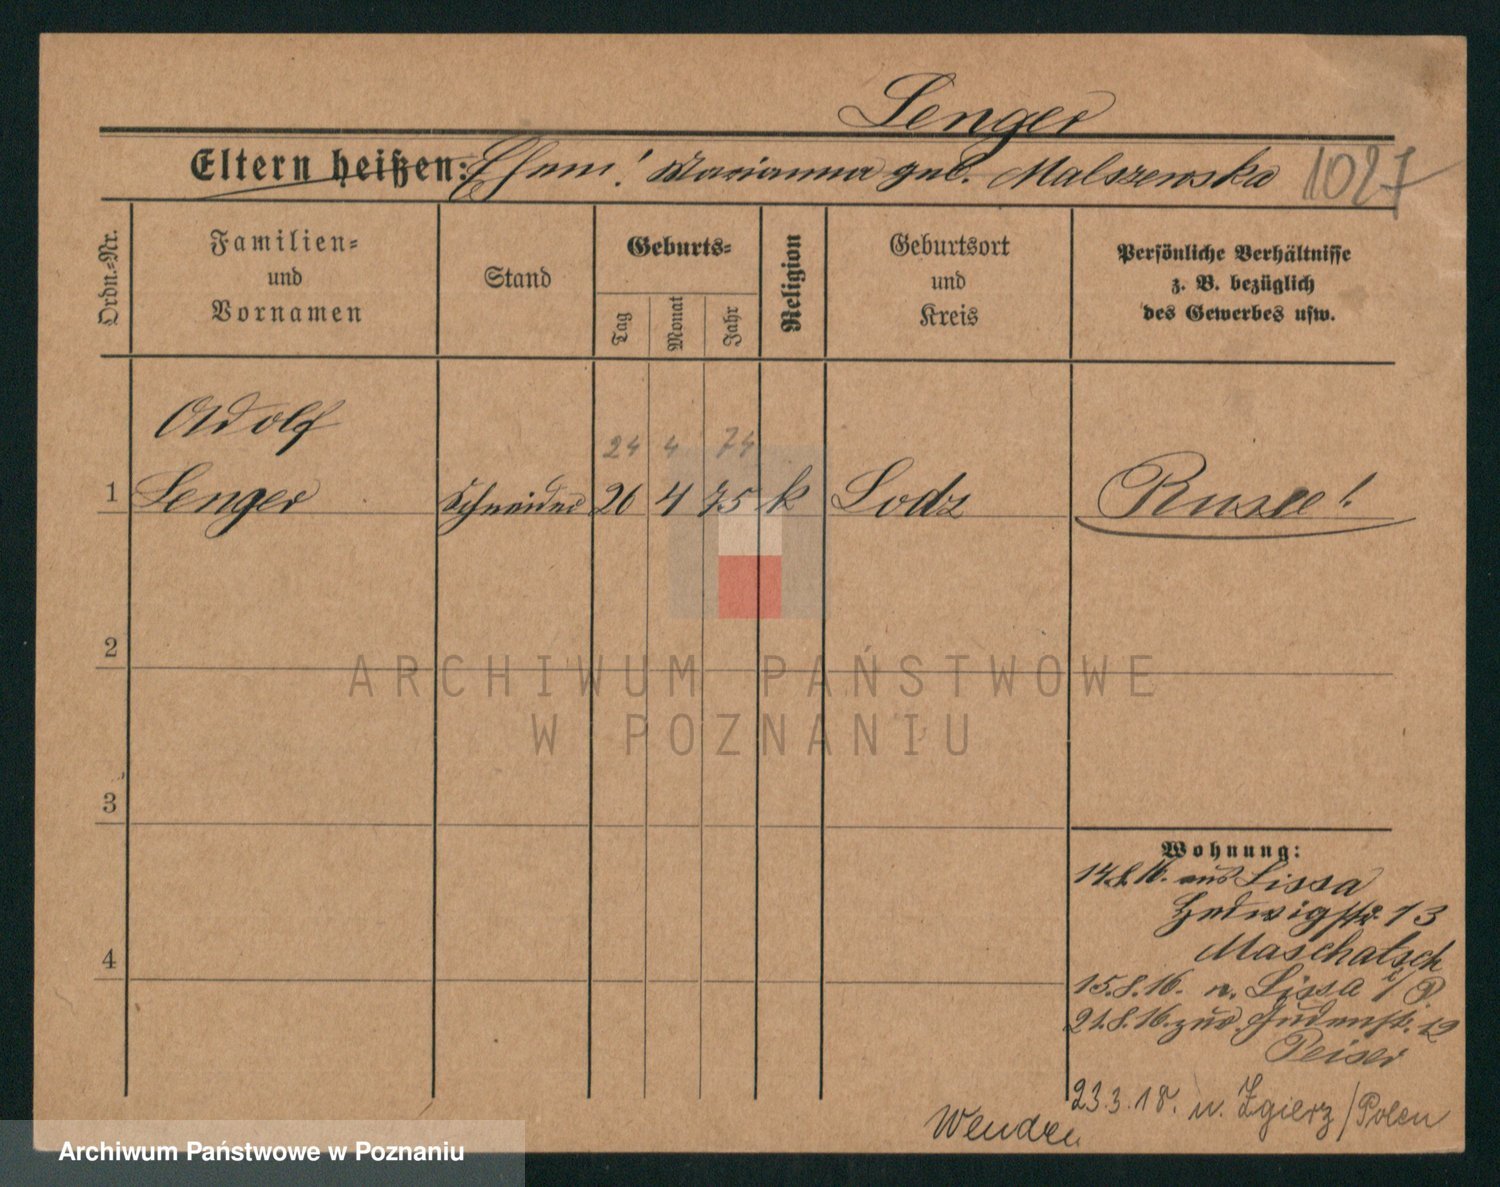 Senger
Eltern heißen: Ehem! Marianna geb. Malszewska 1027
Ordn.-Nr.
Familien- und Vornamen
Stand
Geburts-
Tag
Monat
Jahr
Religion
Geburtsort und Kreis
Persönliche Verhältnisse z. B. bezüglich des Gewerbes usw.
Adolf
24 4 74
1 Senger Schneider 26 4 75 k Lodz Russe!
2
3
4
Wohnung:
14.8.16. aus Lissa
Hedwigstr. 13
Maschatsch
15.8.16. n. Lissa i/P.
21.8.16. zur. Judenst. 12
Peiser
23.3.18. n. Zgierz/Polen
Wenden
ARCHIWUM PAŃSTWOWE
W POZNANIU
Archiwum Państwowe w Poznaniu